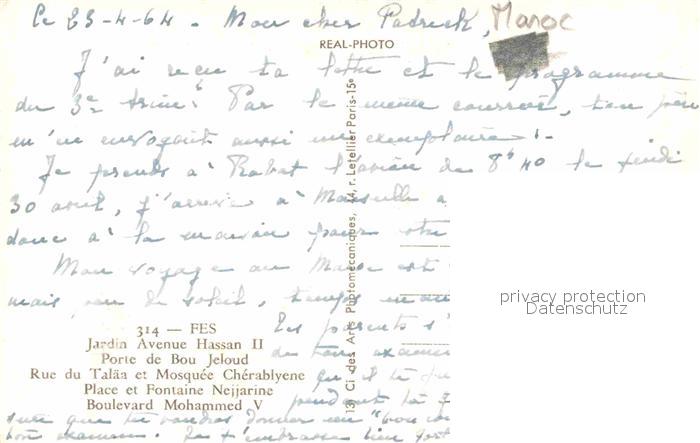 Le 23-4-64 - Mon cher Patrick, Maroc
REAL-PHOTO
J'ai reçu ta lettre et le programme
du 3e trim. Par le même courrier, ton père
m'en envoyait aussi un exemplaire.
Je prends à Rabat l'avion de 8h40 le jeudi
30 avril, j'arrive à Marseille
donc à la maison pour
Mon voyage au Maroc est
mais peu de soleil, temps
Tes parents
314 — FES
Jardin Avenue Hassan II
Porte de Bou Jeloud
de ton
Rue du Talâa et Mosquée Chérablyene
Place et Fontaine Nejjarine
pendant
Boulevard Mohammed V
que tu voudras donner un "bon
bon examen. Je t'embrasse bien fort
139 Ci des Arts Photomécaniques, 44, r. Letellier Paris-15e
privacy protection
Datenschutz